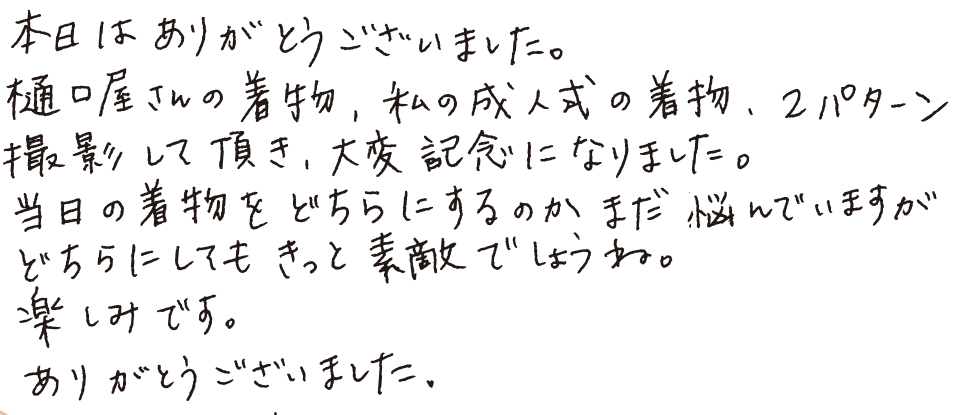 本日はありがとうございました。
樋口屋さんの着物、私の成人式の着物、2パターン
撮影して頂き、大変記念になりました。
当日の着物をどちらにするのかまだ悩んでいますが
どちらにしてもきっと素敵でしょうね。
楽しみです。
ありがとうございました.